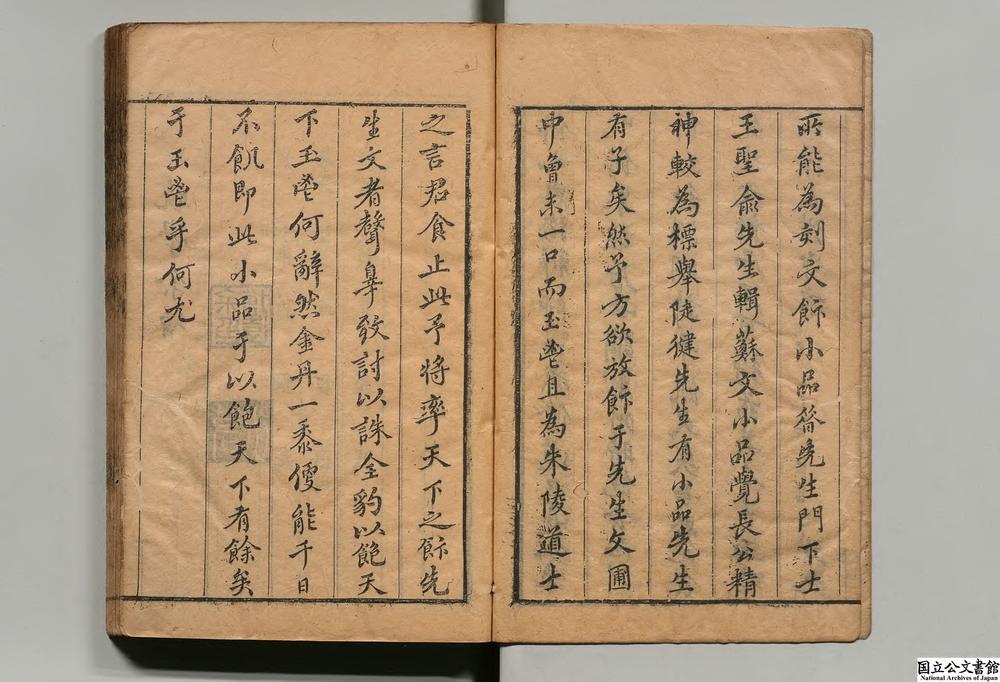 所能為刻文飰小品昔先生門下士
王聖俞先生輯蘇文小品覺長公精
神較為標舉陡健先生有小品先生
有子矣然予方欲放飰于先生文圃
中曾未一口而玉且為朱陵道士
之言君食止此予將率天下之飰先
生文者聲辠致討以誅全豹以飽天
下玉何辭然金丹一黍便能千日
不飢即此小品于以飽天下有餘矣
于玉乎何尤
国立公文書館
National Archives of Japan